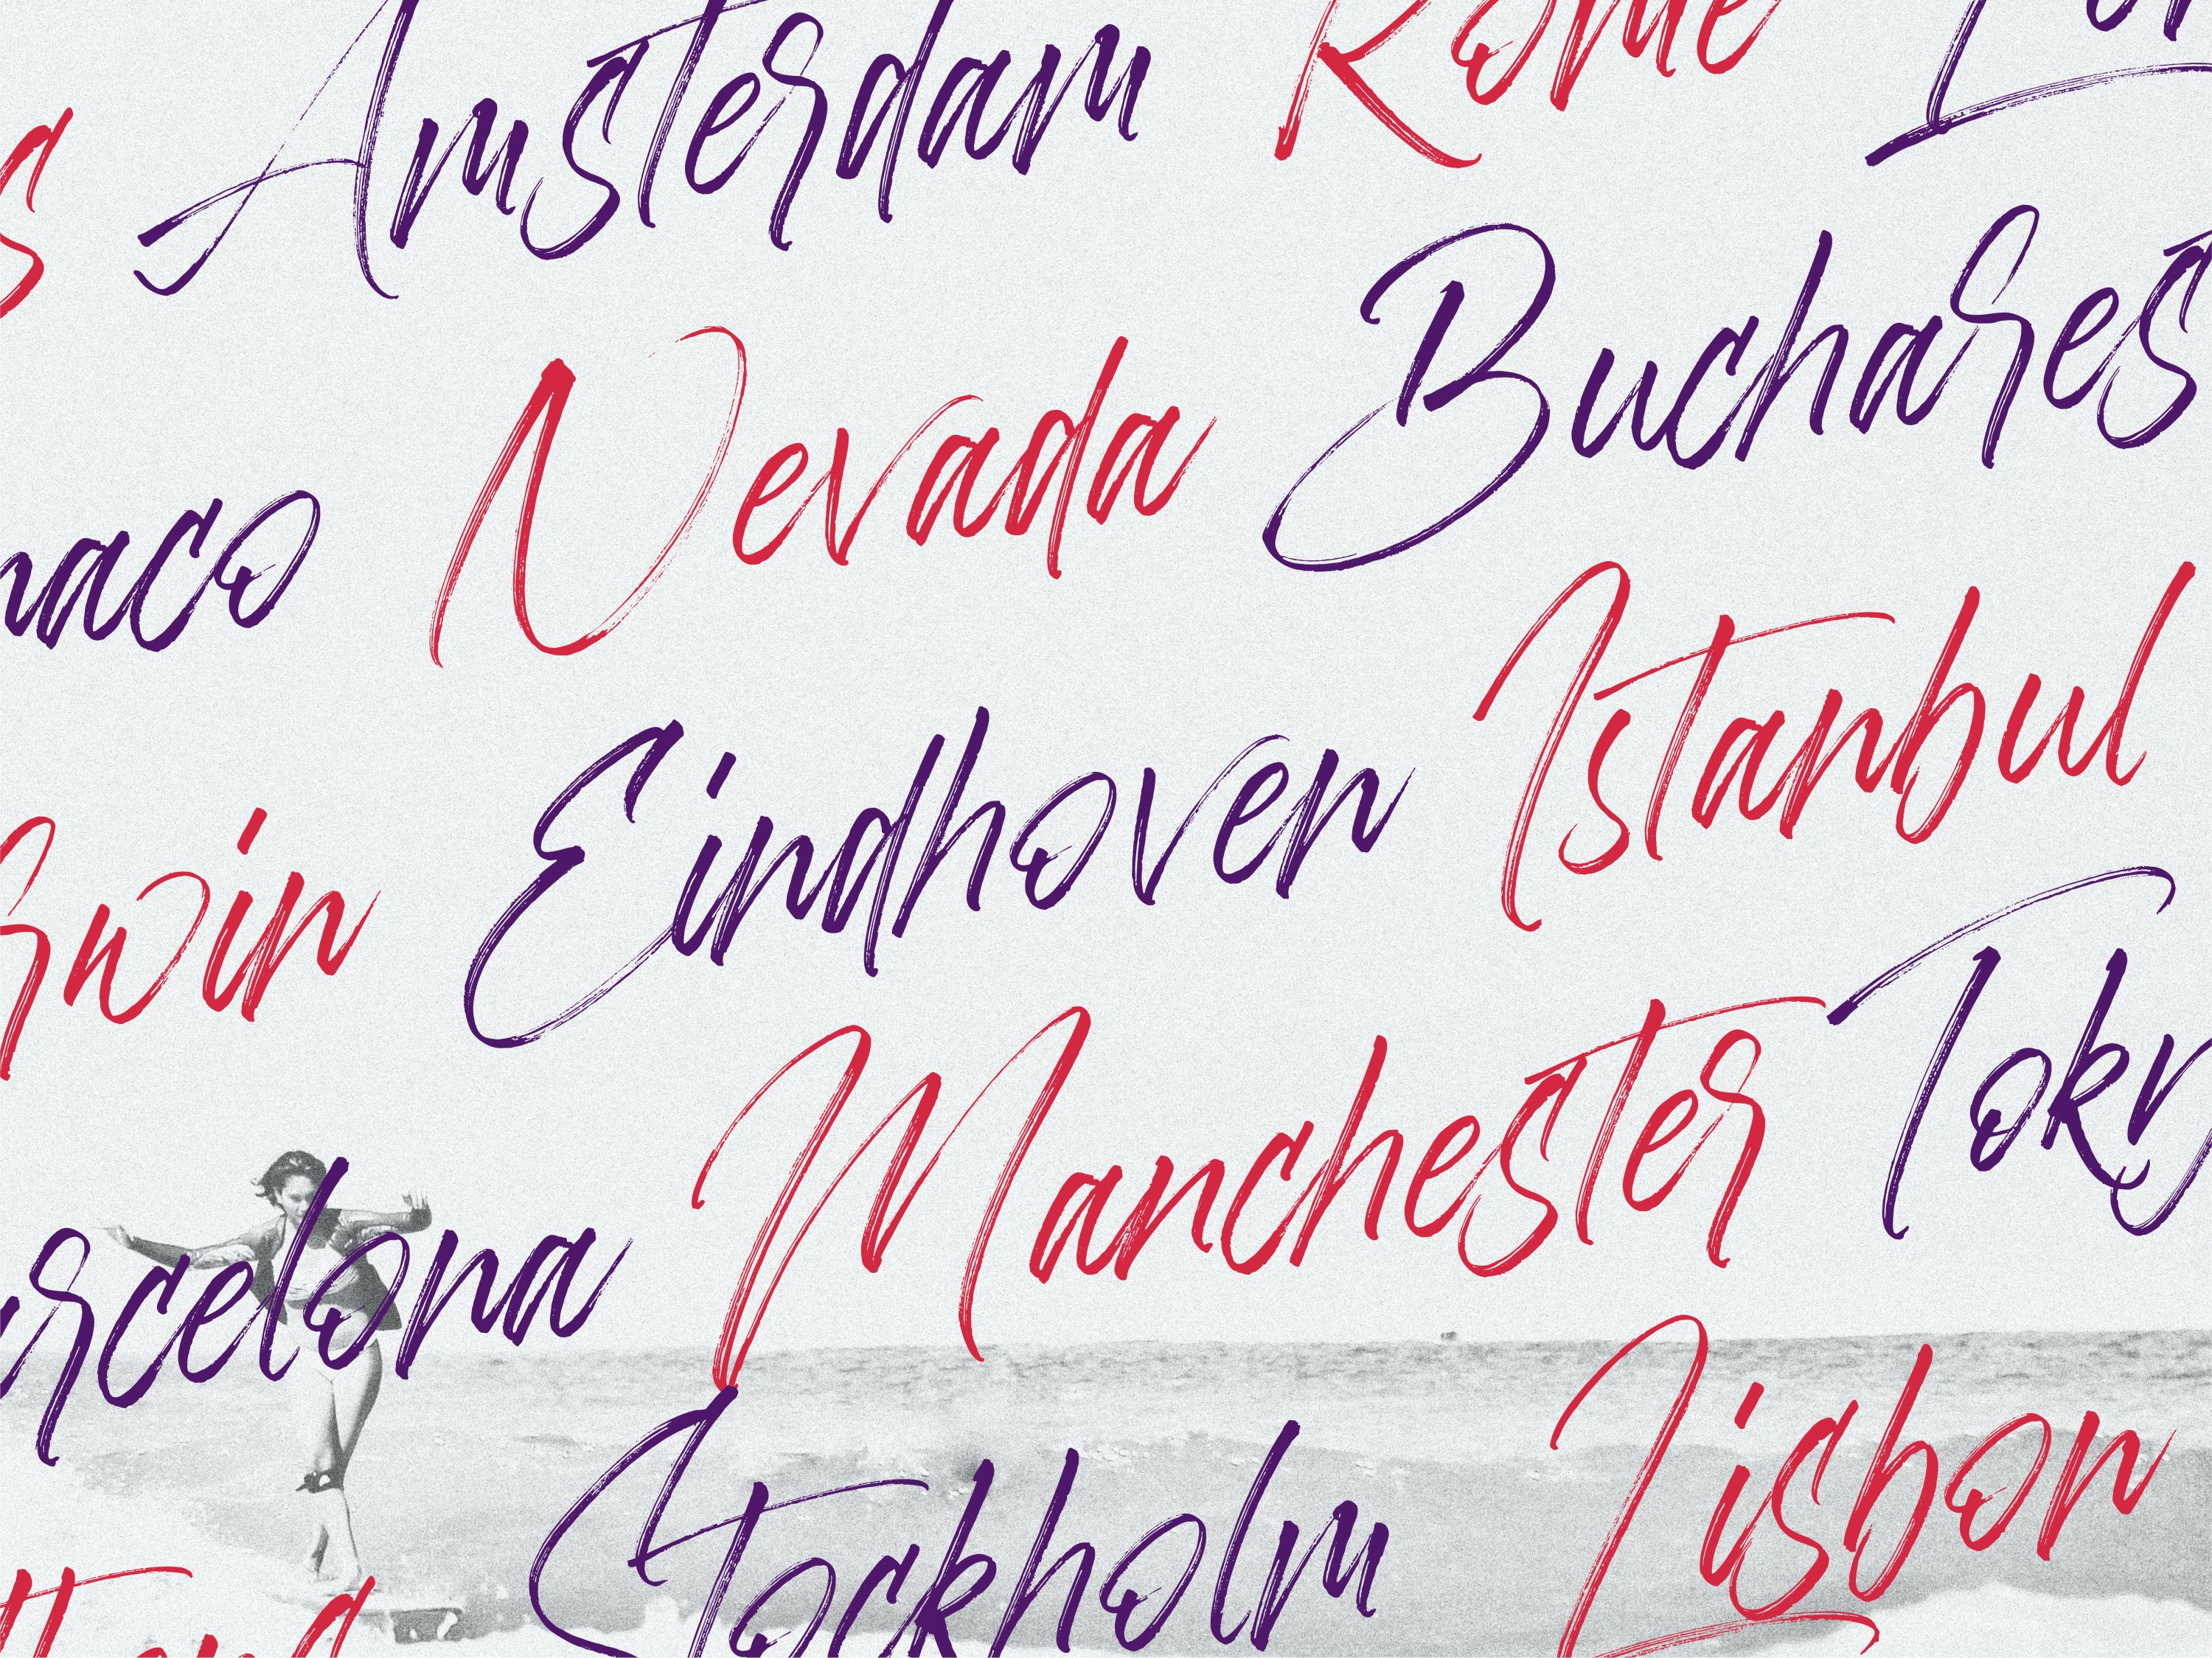 s Amsterdam Rome
naco Nevada Buchares
rwin Eindhoven Istanbul
rcelona Manchester Toky
Stockholm Lisbon